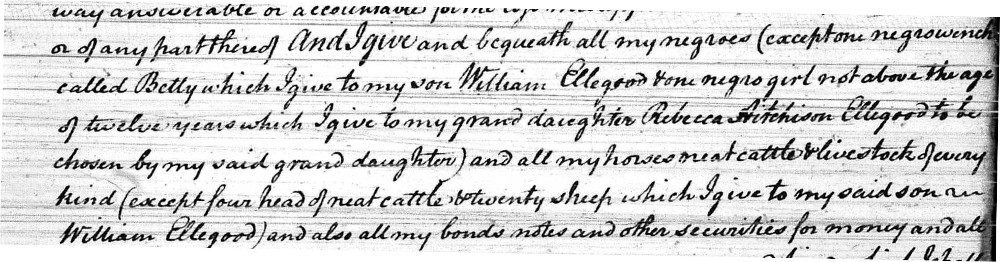 way answerable or accountable for the
or of any part thereof And I give and bequeath all my negroes (except one negro wench
called Betty which I give to my son William Ellegood & one negro girl not above the age
of twelve years which I give to my grand daughter Rebecca Aitchison Ellegood to be
chosen by my said grand daughter) and all my horses neat cattle & livestock of every
kind (except four head of neat cattle & twenty sheep which I give to my said son
William Ellegood) and also all my bonds notes and other securities for money and all